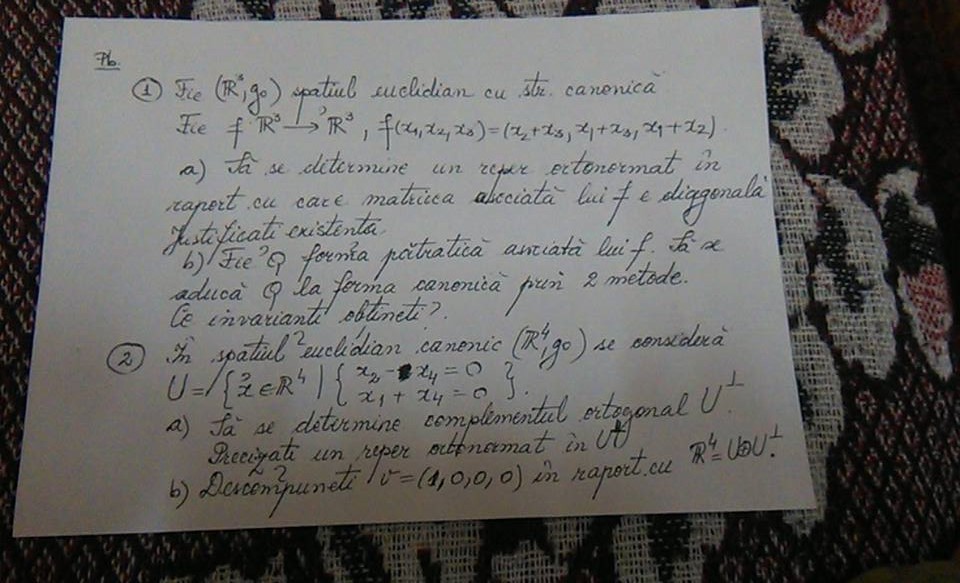 Pb.
① Fie (ℝ³, g₀) spațiul euclidian cu str. canonică
Fie f: ℝ³ → ℝ³, f(x₁, x₂, x₃) = (x₂ + x₃, x₁ + x₃, x₁ + x₂).
a) Să se determine un reper ortonormat în
raport cu care matricea asociată lui f e diagonală
Justificați existența.
b) Fie Q forma pătratică asociată lui f. Să se
aducă Q la forma canonică prin 2 metode.
Ce invarianți obțineți?
② În spațiul euclidian canonic (ℝ⁴, g₀) se consideră
U = { x ∈ ℝ⁴ | { x₂ - x₄ = 0
x₁ + x₄ = 0 }.
a) Să se determine complementul ortogonal U⊥.
Precizați un reper ortonormat în
b) Descompuneți v = (1, 0, 0, 0) în raport cu ℝ⁴ = U⊕U⊥.